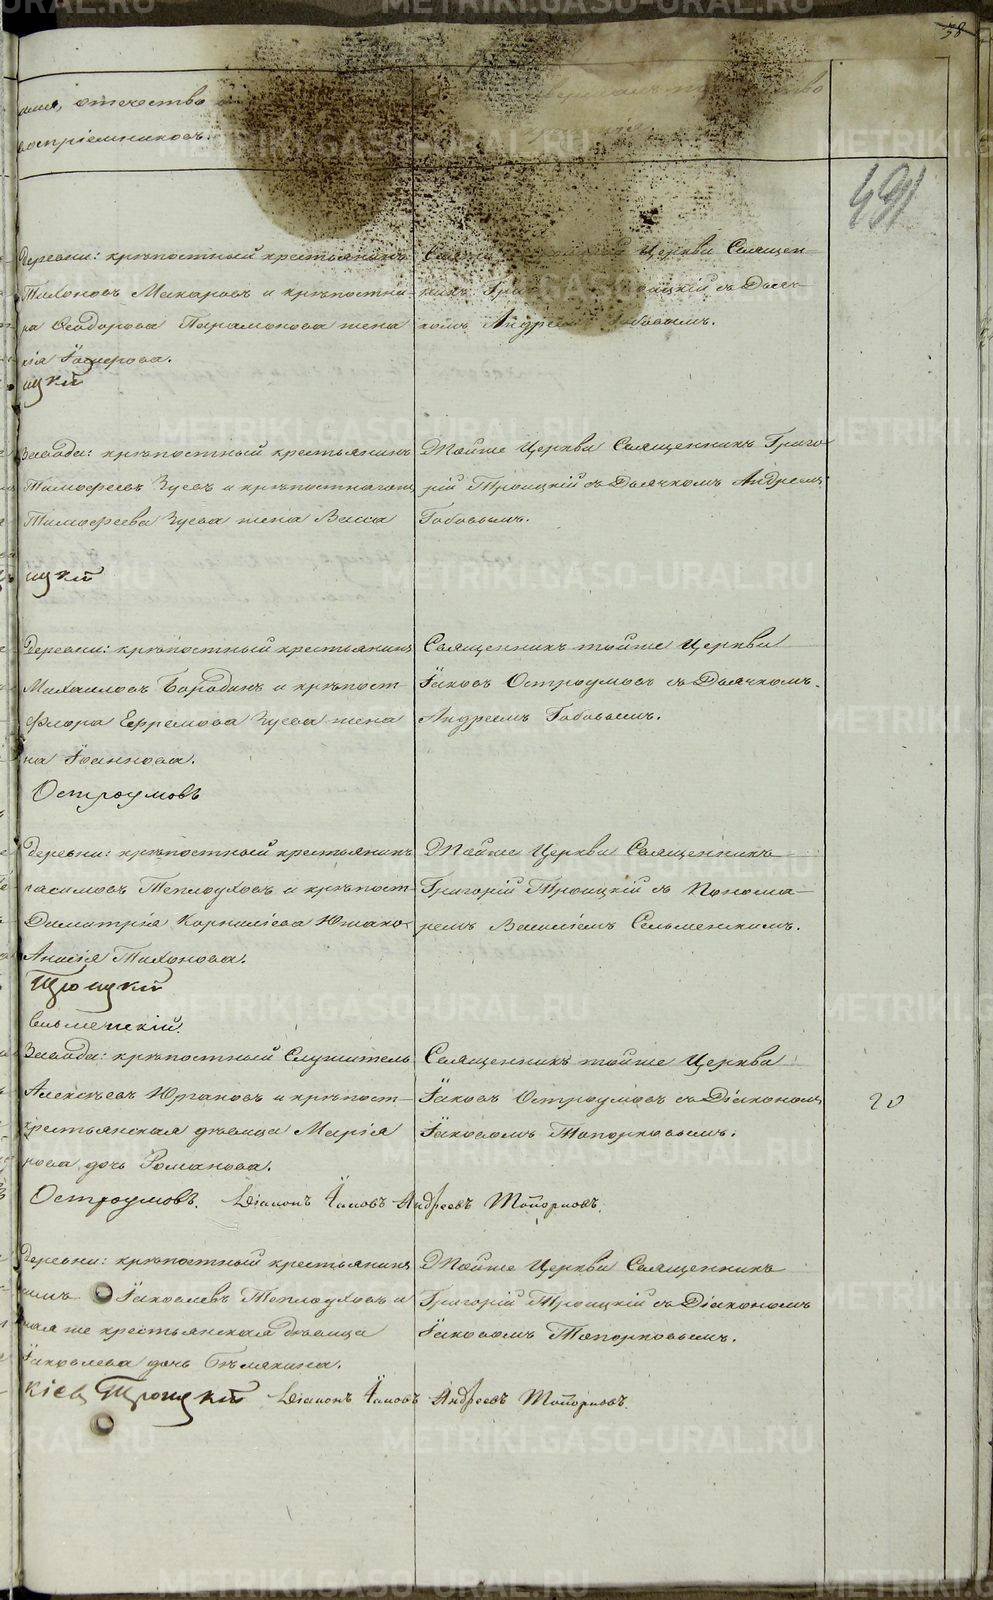 58
имя, отечество
воспріемниковъ.
491
Деревни: крѣпостный крестьянинъ
Тихоновъ Макаровъ и крѣпостна-
ра Ѳеодорова Парамонова жена
цкій
Церкви Священ-
никъ
цкій съ Дьяч-
комъ Андреемъ
Завода: крѣпостный крестьянинъ
Тимофеевъ Зуевъ и крѣпостнаго
Тимофеева Зуева жена Васса
ицкій
Тойже Церкви Священникъ Григо-
рій Троицкій съ Дьячкомъ Андреемъ
Бабовымъ.
Деревни: крѣпостный крестьянинъ
Михаиловъ Бородинъ и крѣпост-
Флора Ефремова Зуева жена
на Іоаннова.
Остроумовъ
Священникъ тойже Церкви
Іаковъ Остроумовъ съ Дьячкомъ
Андреемъ Бабовымъ.
Деревни: крѣпостный крестьянинъ
расимовъ Теплоуховъ и крѣпост-
Димитрія Корнилiева Юшко-
Анисія Тихонова.
Троицкій
сельменскій.
Тойже Церкви Священникъ
Григорій Троицкій съ Понома-
ремъ Василіемъ Сельменскимъ.
Завода: крѣпостный Служитель
Алексѣевъ Юргановъ и крѣпост-
крестьянская дѣвица Марія
рова дочь Романова.
Остроумовъ. Діаконъ Іаковъ Андреевъ Топорковъ.
Священникъ тойже Церкви
Іаковъ Остроумовъ съ Діакономъ
Іаковомъ Топорковымъ.
20
Деревни: крѣпостный крестьянинъ
Іаковлевъ Теплоуховъ и
ная же крестьянская дѣвица
Іаковлева дочь Бѣлякина.
Троицкій Діаконъ Іаковъ Андреевъ Топорковъ.
Тойже Церкви Священникъ
Григорій Троицкій съ Діакономъ
Іаковомъ Топорковымъ.
METRIKI.GASO-URAL.RU